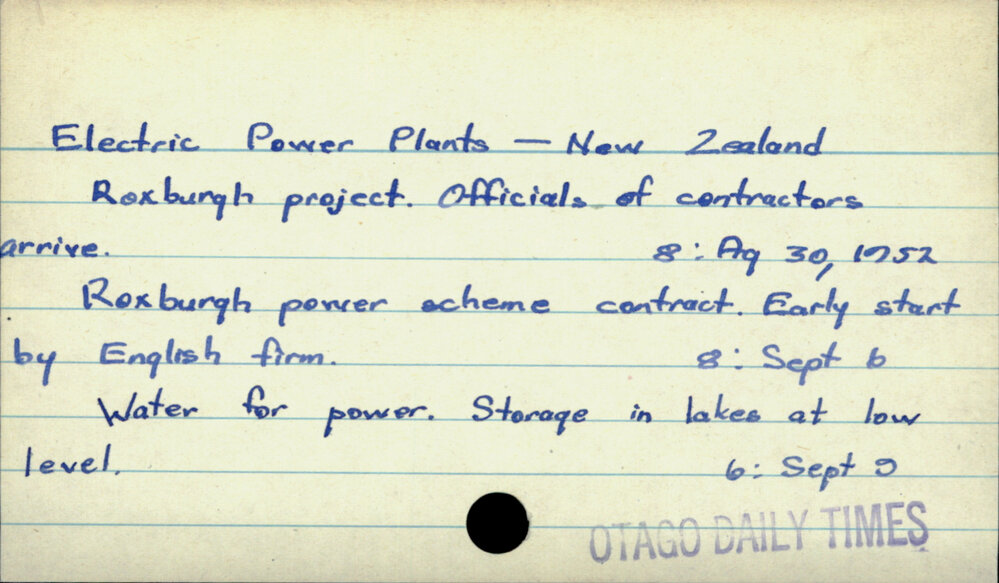 Electric Power Plants — New Zealand
Roxburgh project. Officials of contractors
arrive. 8: Ag 30, 1952
Roxburgh power scheme contract. Early start
by English firm. 8: Sept 6
Water for power. Storage in lakes at low
level. 6: Sept 9
OTAGO DAILY TIMES